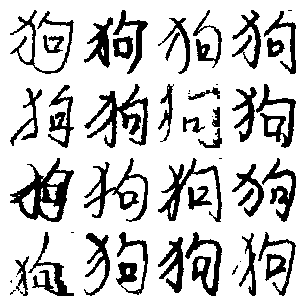 狗狗狗狗
狗狗狗狗
狗狗狗狗
狗狗狗狗